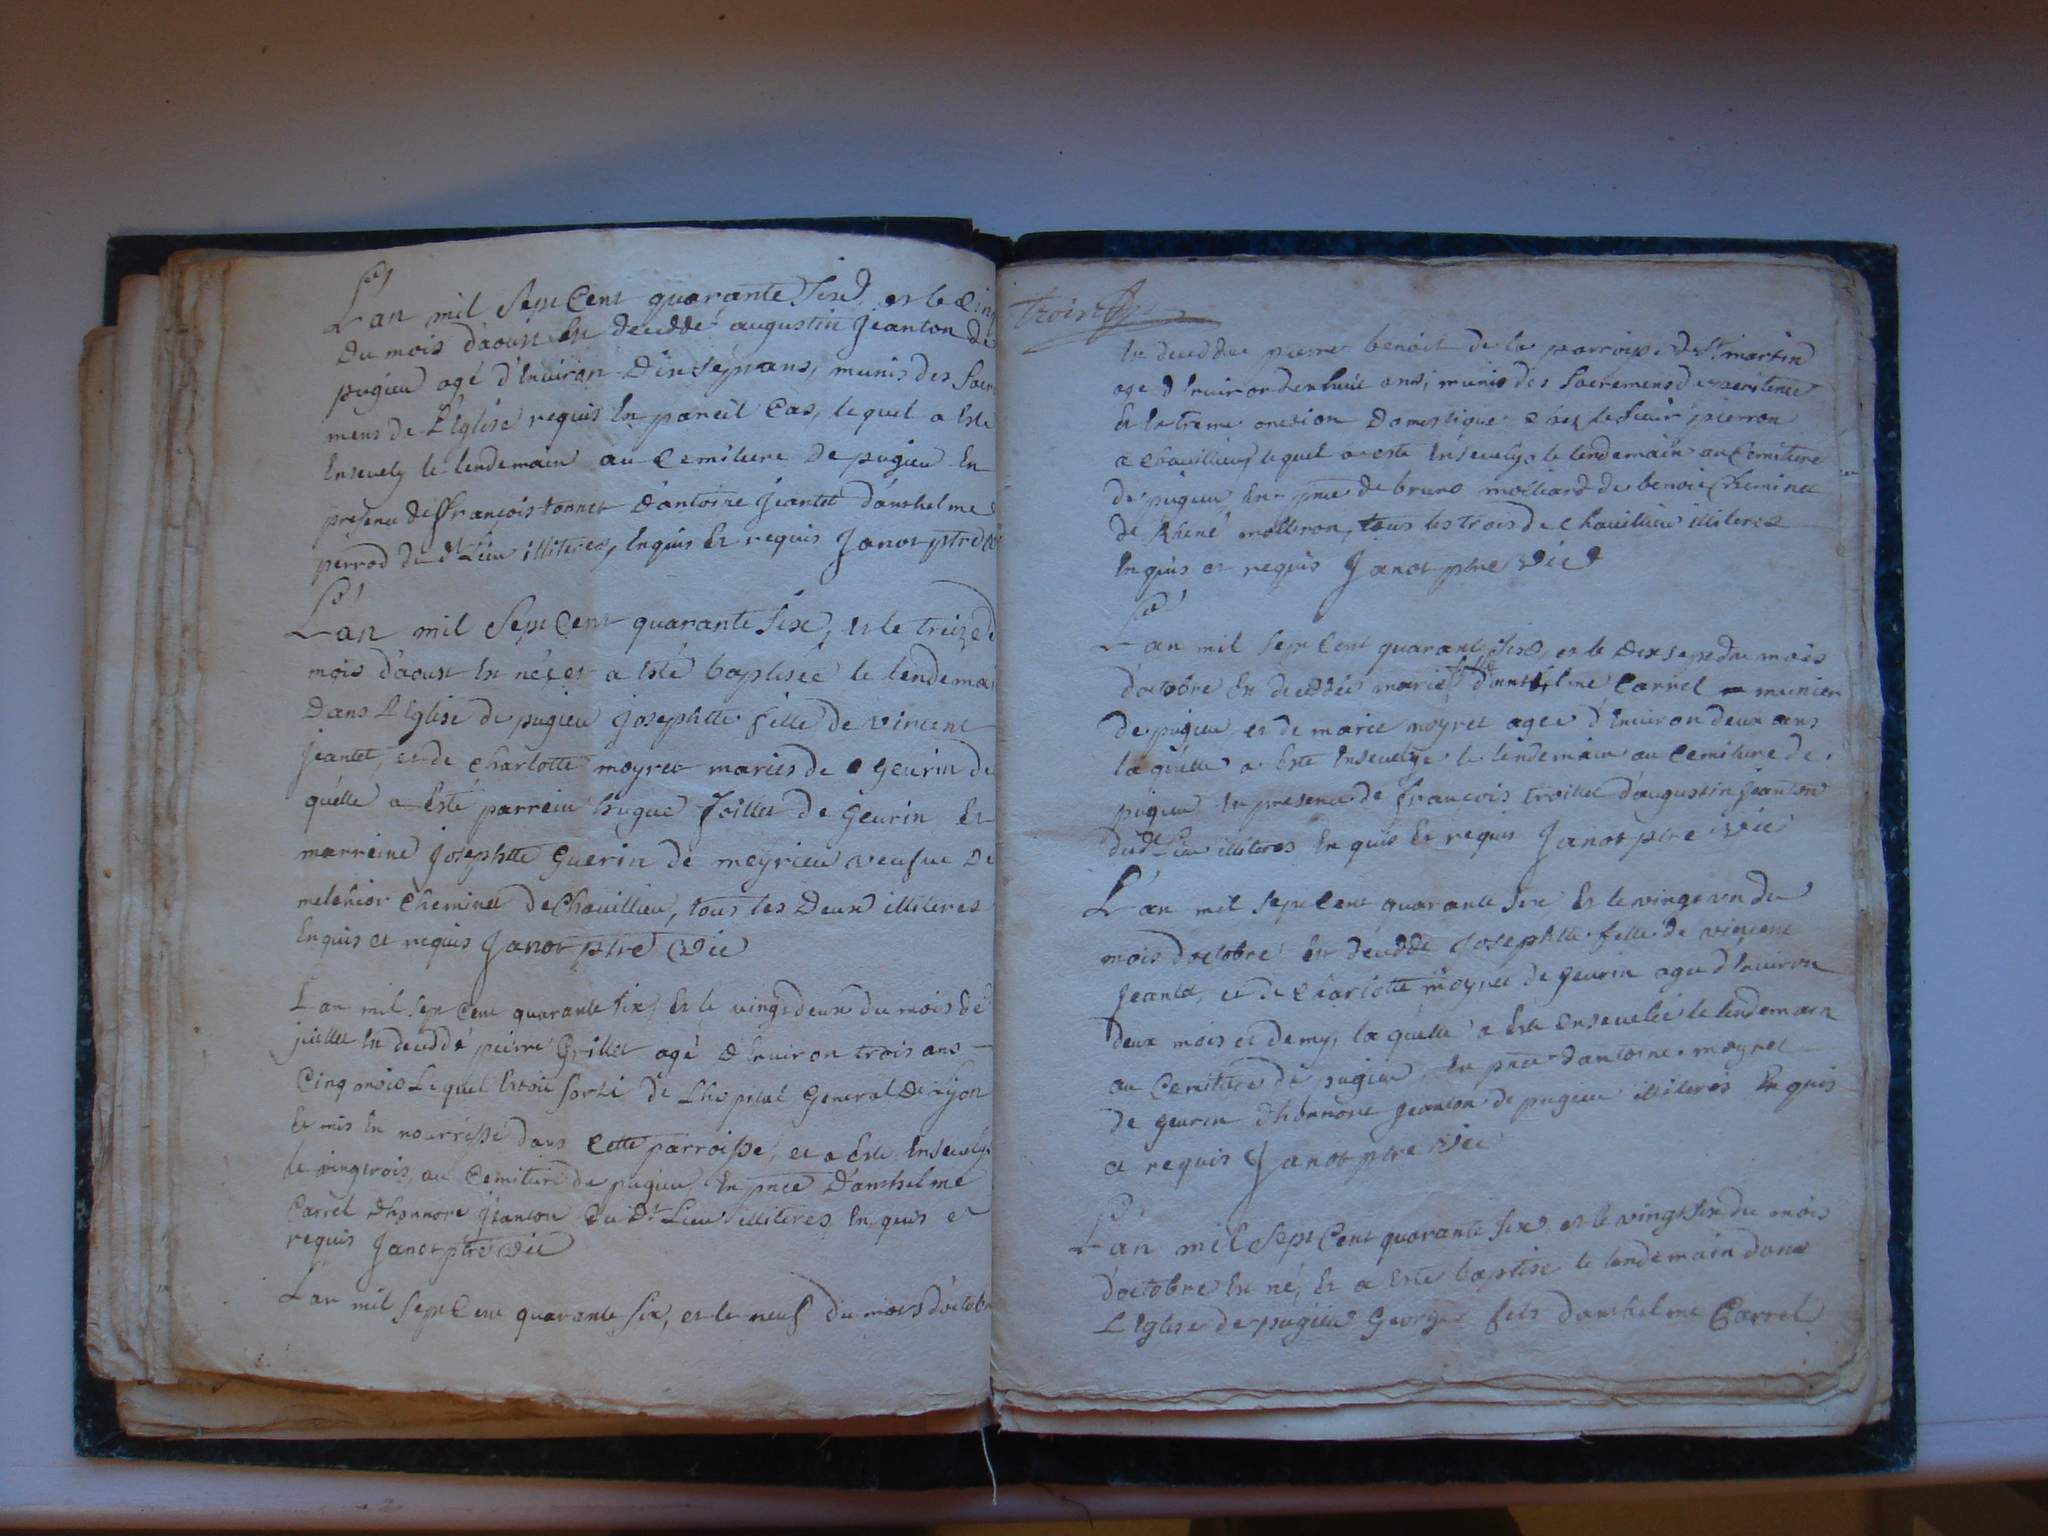 L'an mil Sept Cent quarante Six, et le Cinq
Du mois d'aoust Est decedde augustin Jeanton de
pugieu agé d'Environ Dix sept ans, munis des Sacre
mens de L'Eglise requis En pareil Cas, lequel a Este
Ensevely le lendemain au Cemitiere de pugieu En
presence de françois tonnet d'antoine Jeantet d'anthelme
perrod du dt Lieu illiteres, Enquis Et requis Janot ptre
L'an mil Sept Cent quarante Six, et le treize d
mois d'aoust Est née et a Esté baptisée le lendemai
Dans L'Eglise de pugieu Josephtte fille de vincent
Jeantet, et de Charlotte moyret mariés de Geurin de
quelle a Esté parrein hugue Joillet de Geurin Et
marreine Josephtte Guerin de meyrieu veufve De
melchior Cheminet de Chavillieu, tous les Deux illiteres
Enquis et requis Janot ptre Vic
L'an mil Sept Cent quarante Six, Et le vingt deux du mois de
juillet Est decedde pierre Grillet agé d'Environ trois ans
Cinq mois Lequel Estoit sorti de L'hopital General de Lyon
Et mis En nourrisse dans Cette parroisse, et a Este Ensevely
le vingt trois, au Cemitiere de pugieu En pnce D'anthelme
Carrel d'honnore Jeanton du dt Lieu illiteres, Enquis et
requis Janot ptre Vic
L'an mil Sept Cent quarante Six, et le neuf du mois d'octobr
trois
Est decedde pierre benoit de la parroisse de St martin
age d'Environ dix huit ans, munis des Sacremens de penitence
Et Extreme onction Domestique chez le Sieur pierron
a Chavillieu lequel a este Ensevely le lendemain au Cemitiere
de pugieu En pnce de bruno molliard de benoit Cheminet
de Rhené molleron, tous les trois de Chavillieu illiteres
Enquis et requis Janot ptre Vic
L'an mil Sept Cent quarante Six, et le Dix sept du mois
d'octobre Est deceddée marie fille d'anthelme Carrel munier
de pugieu et de marie moyret agee d'Environ deux ans
laquelle a Este Ensevelye le lendemain au Cemitiere de
pugieu En presence de francois troillet d'augustin Jeanton
du dt Lieu illiteres Enquis Et requis Janot ptre Vic
L'an mil Sept Cent quarante Six Et le vingt un du
mois d'octobre Est decedde Josephtte fille de vincent
Jeantet, et de Charlotte moyret de Geurin agee d'Environ
deux mois et demy, laquelle a Este Ensevelie le lendemain
au Cemitiere de pugieu En pnce d'antoine moyret
de Geurin d'honnore Jeanton de pugieu illiteres Enquis
et requis Janot ptre Vic
L'an mil Sept Cent quarante Six, et le vingt Six du mois
d'octobre Est né, Et a Este baptise le lendemain dans
L'Eglise de pugieu George fils d'anthelme Carrel